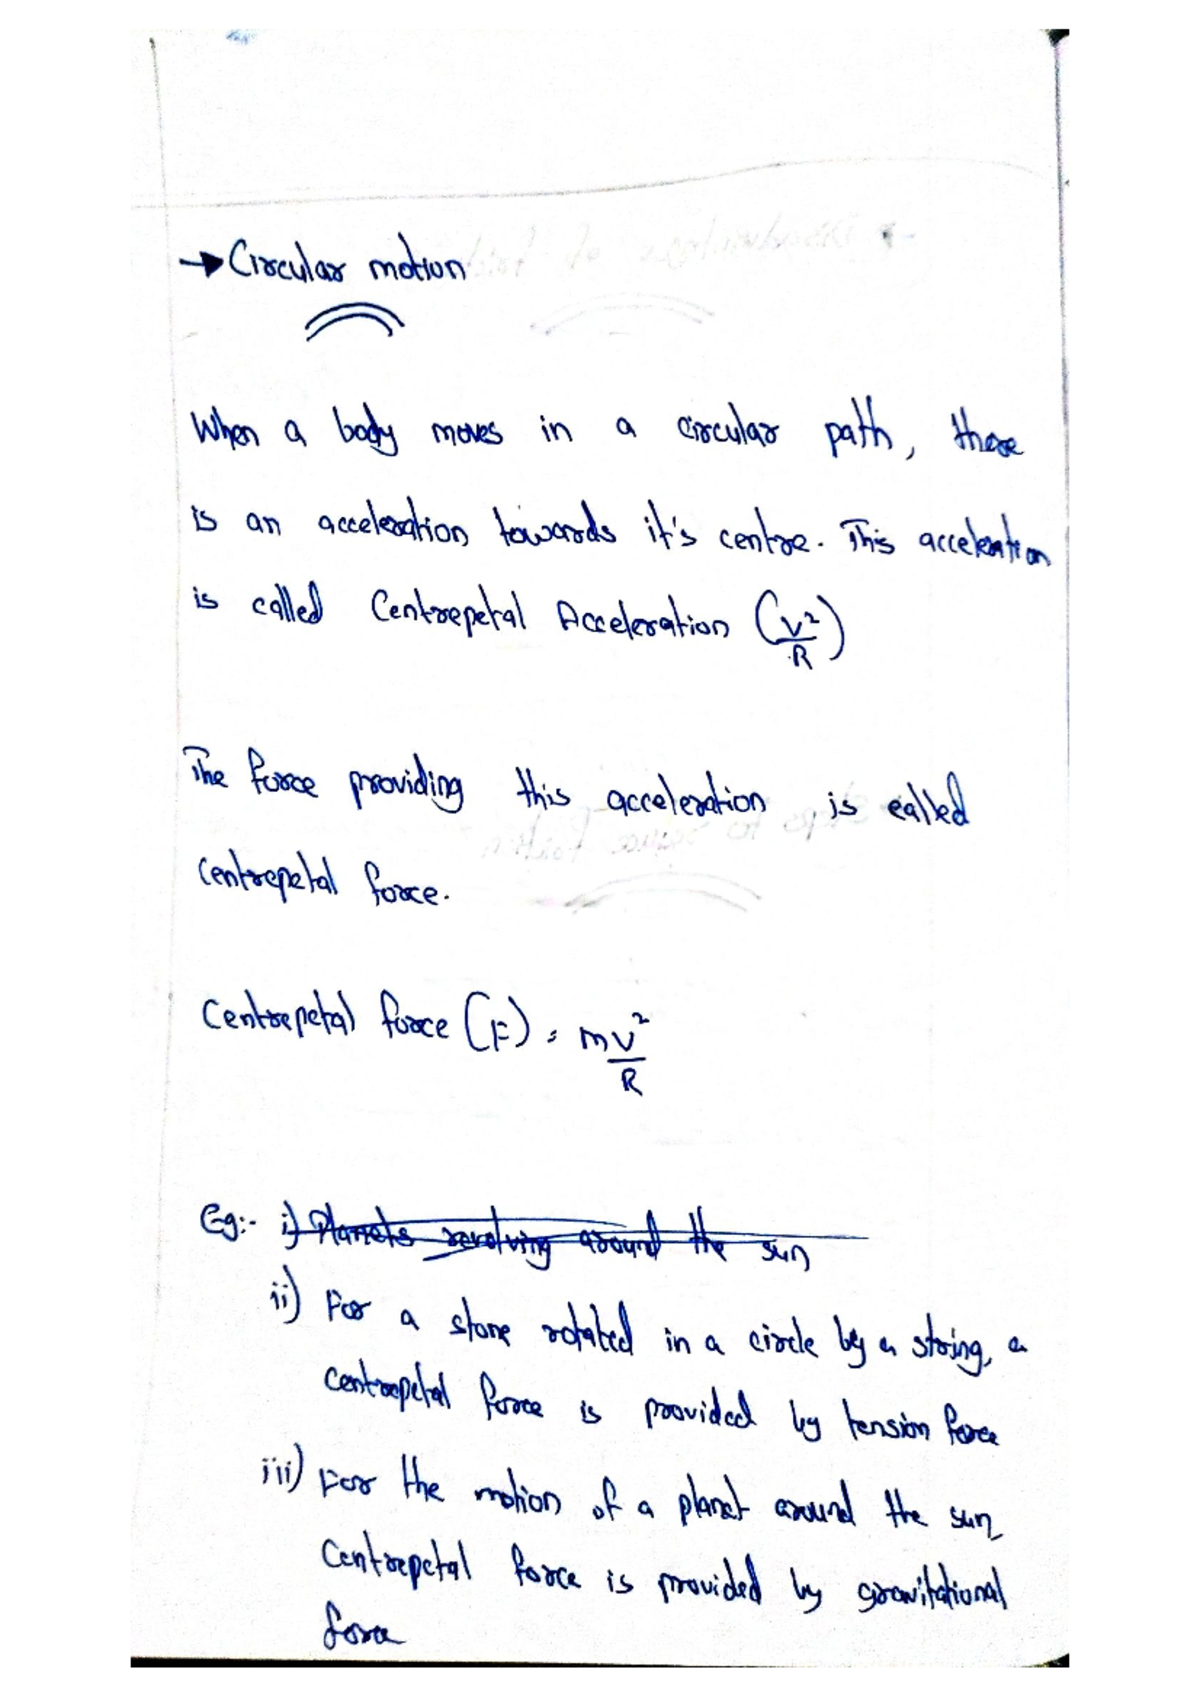 → Circular motion
When a body moves in a circular path, there
is an acceleration towards it's centre. This acceleration
is called Centrepetal Acceleration (V²/R)
The force providing this acceleration is called
centrepetal force.
Centrepetal force (F) = mv²/R
Eg:- i) Planets revolving around the sun
ii) For a stone rotated in a circle by a string, a
centrepetal force is provided by tension force
iii) For the motion of a planet around the sun
Centrepetal force is provided by gravitational
force